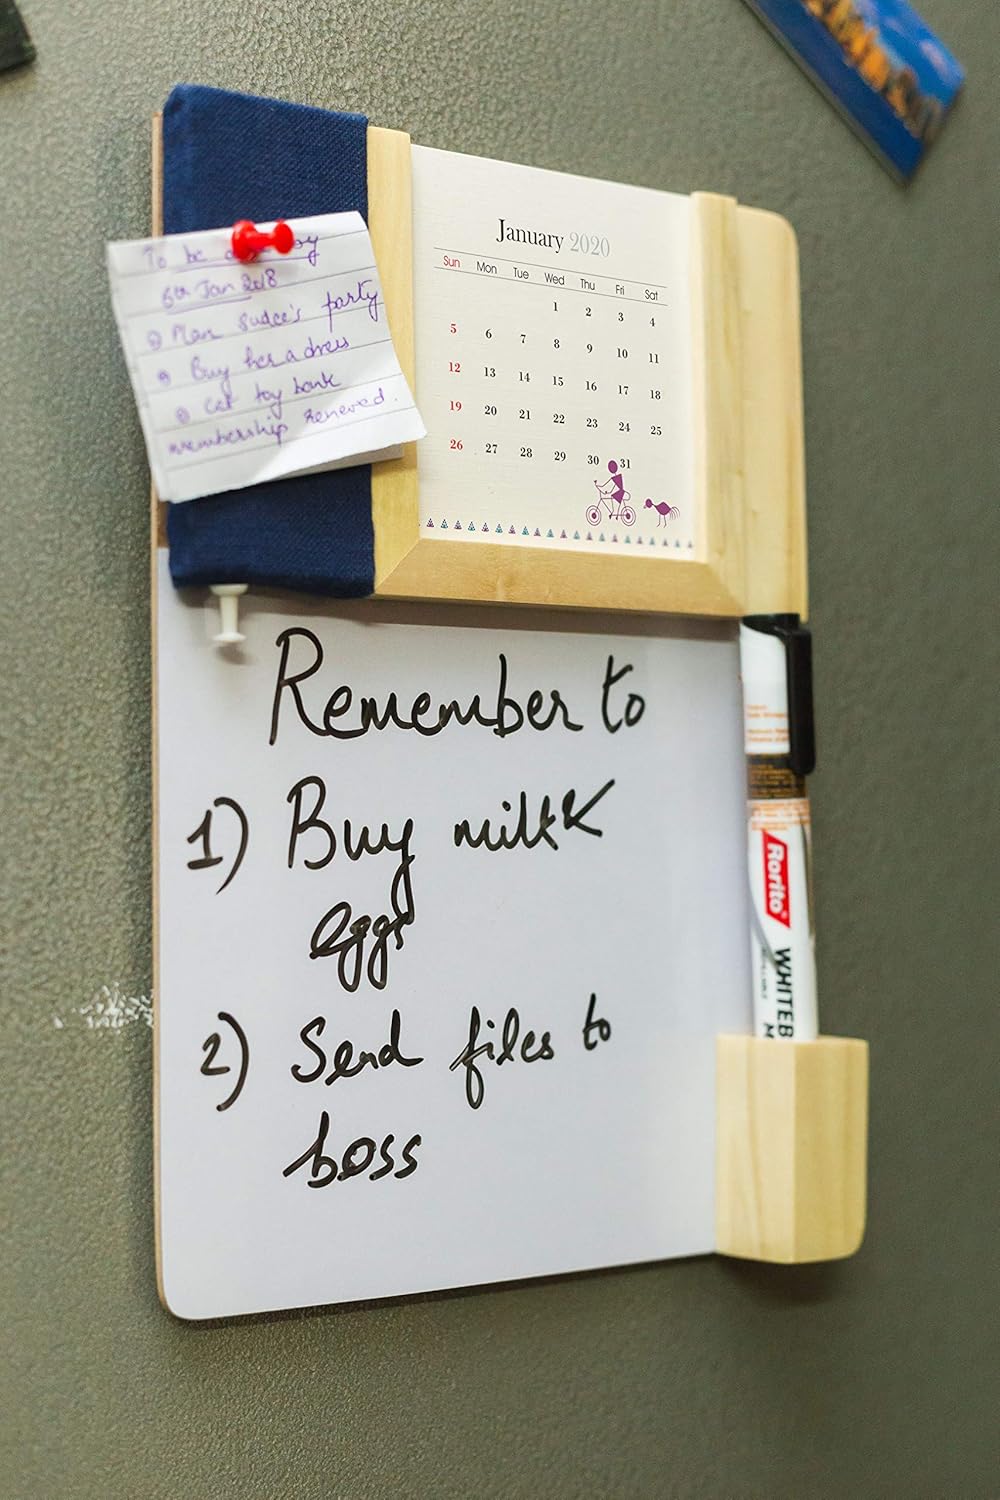 January 2020
Sun Mon Tue Wed Thu Fri Sat
1 2 3 4
5 6 7 8 9 10 11
12 13 14 15 16 17 18
19 20 21 22 23 24 25
26 27 28 29 30 31
To be by
6th Jan 2018
Plan party
Buy her a dress
Get toy bank
membership renewed.
Remember to
1) Buy milk
eggs
2) Send files to
boss
Rorito
WHITEB
M